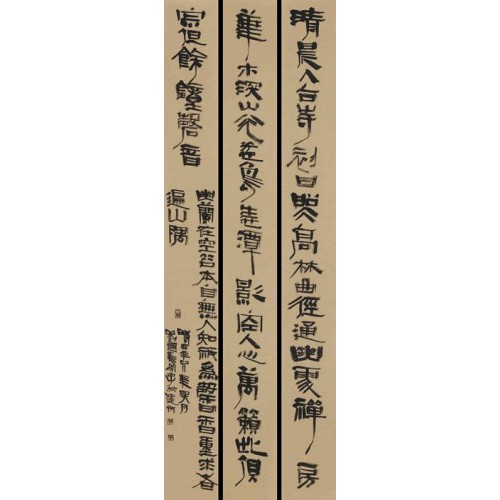 晴晨入古寺初日照高林曲徑通幽處禪房
華木深山光悅鳥性潭影空人心萬籟此俱
寂但餘鐘磬音
幽蘭在空谷本自無人知祇為馨香重求者
遍山隅